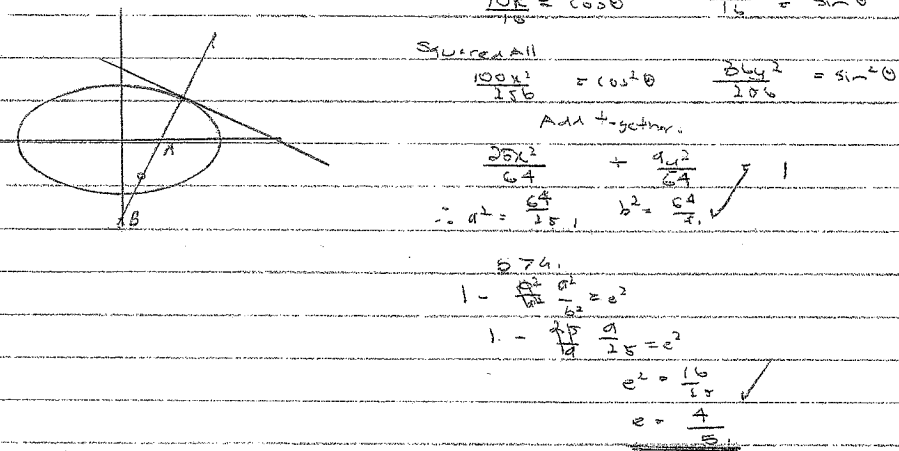 10x/16 = cosθ    /16 = sinθ
Squared All
100x²/256 = cos²θ    36y²/256 = sin²θ
Add together.
25x²/64 + 9y²/64    1
∴ a² = 64/25,    b² = 64/9,
b > a.
1 - a²/b² = e²
1 - 9/25 = e²
e² = 16/25
e = 4/5
A
B